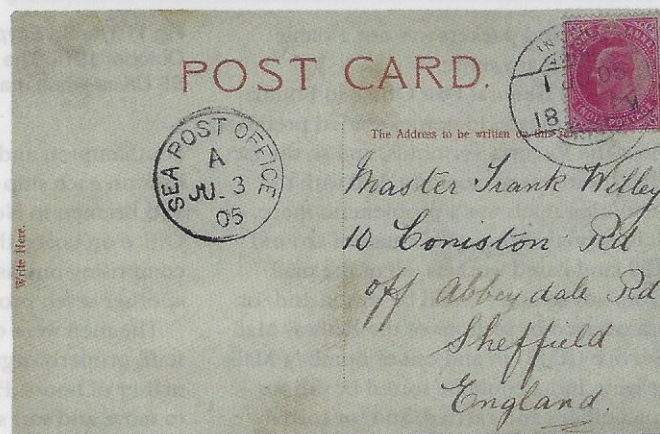 POST CARD.
The Address to be written on this
SEA POST OFFICE
A
JU. 3
05
18
INDIA POSTAGE
Write Here.
Master Frank Willey
10 Coniston Rd
off Abbeydale Rd
Sheffield
England.